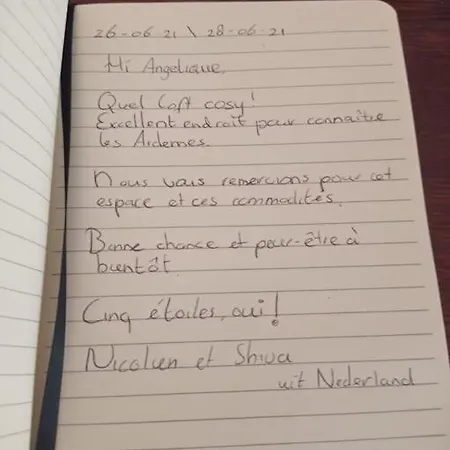 26-06-21 \ 28-06-21
Hi Angelique,
Quel loft cosy!
Excellent endroit pour connaître
les Ardennes.
Nous vous remercions pour cet
espace et ces commodités.
Bonne chance et peur-être à
bientôt.
Cinq étoiles, oui!
Nicolien et Shiva
uit Nederland